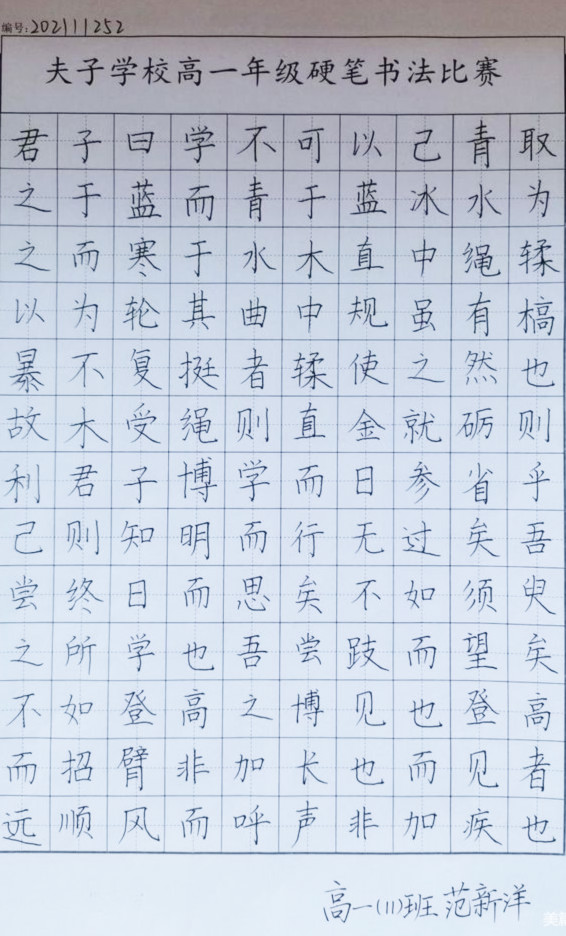 编号:202111252
夫子学校高一年级硬笔书法比赛
君子曰学不可以己青取
之于蓝而青于蓝冰水为
之而寒于水木直中绳𫐓
以为轮其曲中规虽有槁
暴不复挺者𫐓使之然也
故木受绳则直金就砺则
利君子博学而日参省乎
己则知明而行无过矣吾
尝终日而思矣不如须臾
之所学也吾尝跂而望矣
不如登高之博见也登高
而招臂非加长也而见者
远顺风而呼声非加疾也
高一(11)班 范新洋